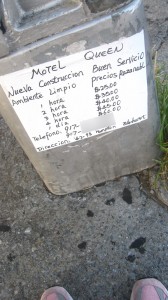 MOTEL QUEEN
Nueva Construccion Buen Servicio
Ambiente Limpio precios razonable
1 hora $25.00
2 hora $35.00
3 hora $40.00
4 hora $45.00
1 dia
Telefono. 917.
Direccion: